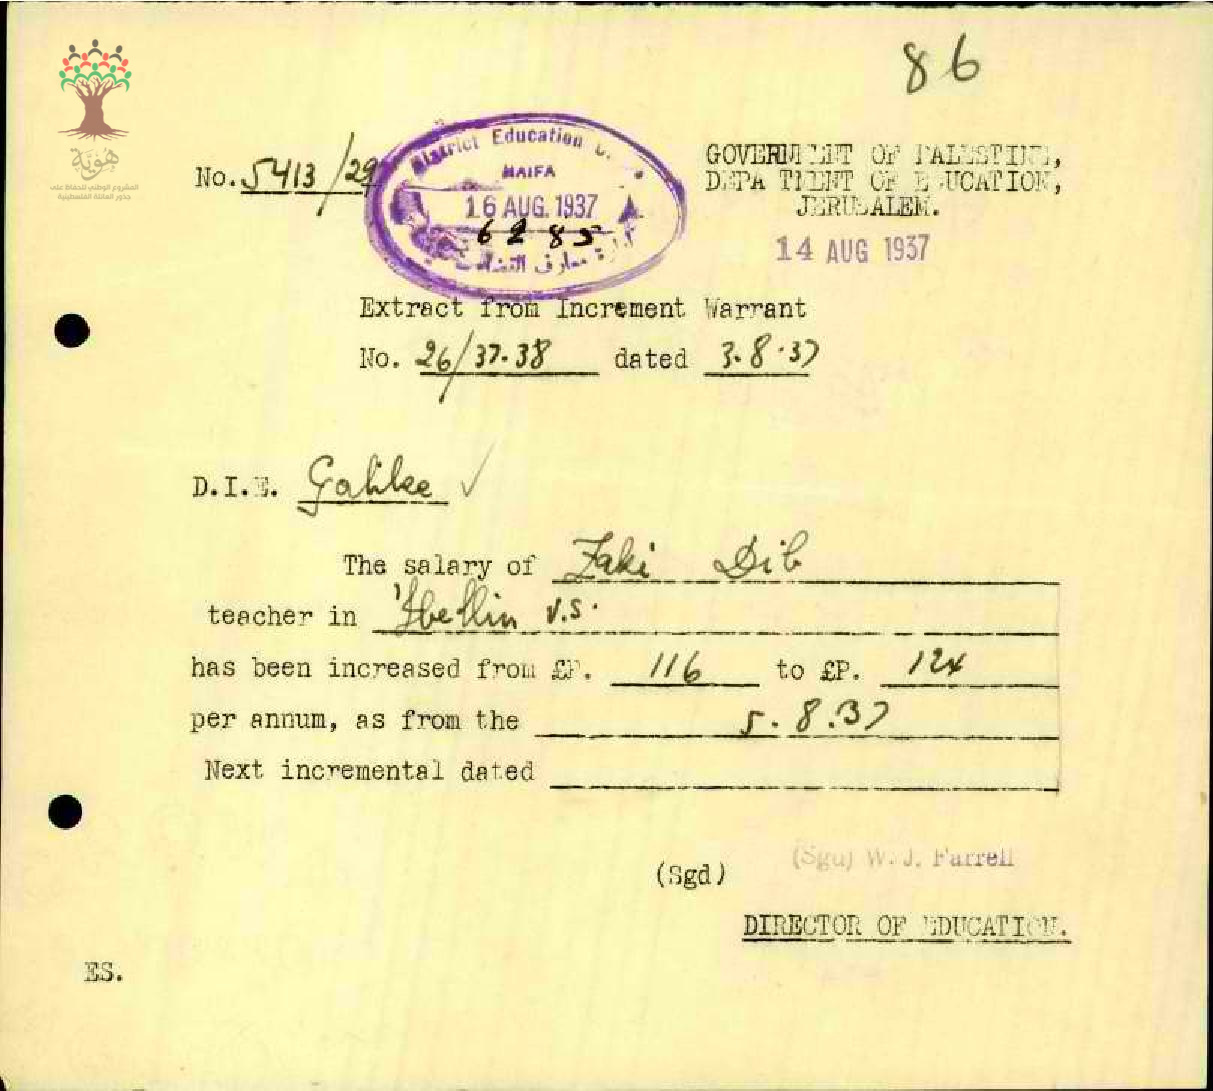 86
هوية
المشروع الوطني للحفاظ على
جذور العائلة الفلسطينية
No. 5413/29
District Education
HAIFA
16 AUG. 1937
6285
معارف
GOVERNMENT OF PALESTINE,
DEPARTMENT OF EDUCATION,
JERUSALEM.
14 AUG 1937
Extract from Increment Warrant
No. 26/37-38 dated 3.8.37
D.I.E. Galilee ✓
The salary of Zaki Dib
teacher in 'Ibellin V.S.
has been increased from £P. 116 to £P. 124
per annum, as from the 5.8.37
Next incremental dated
(Sgd) W. J. Farrell
(Sgd)
DIRECTOR OF EDUCATION.
ES.